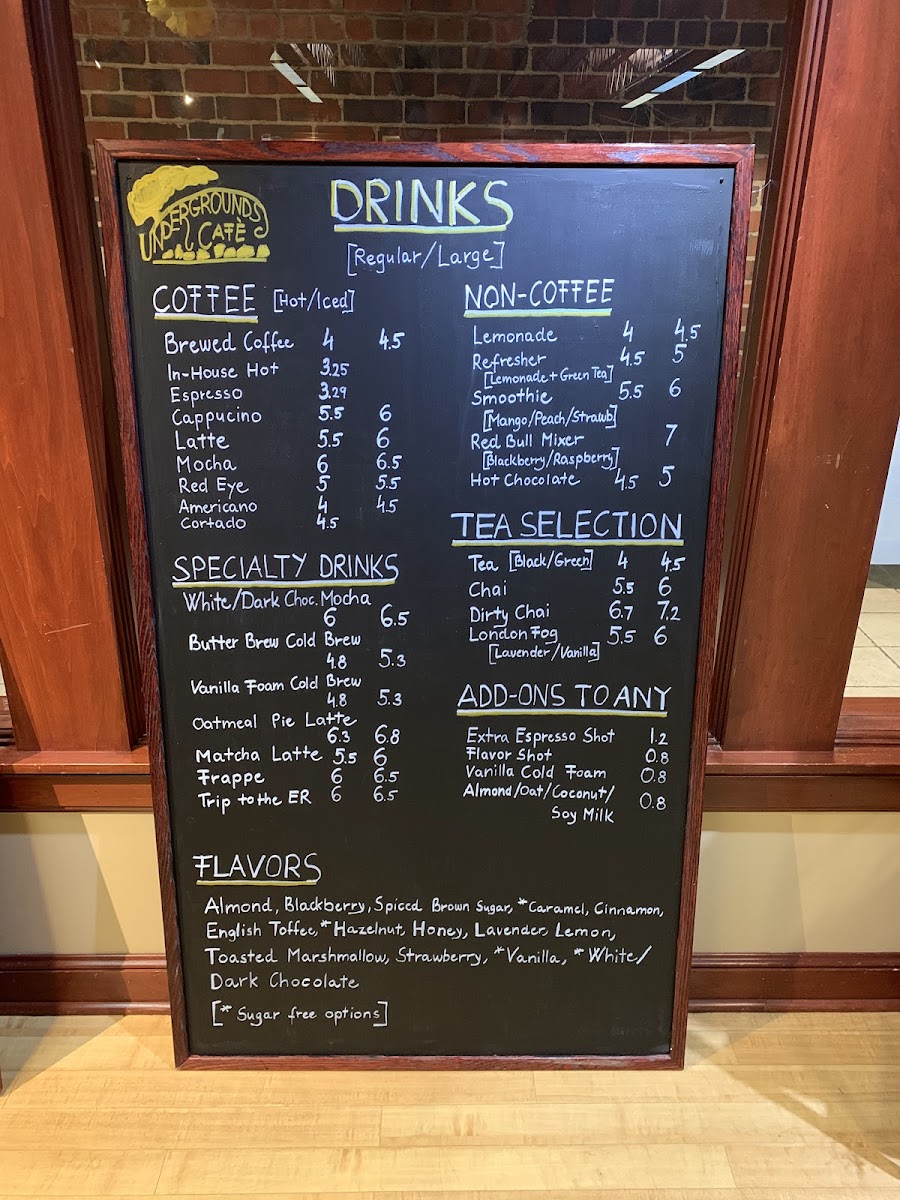 UNDERGROUNDS
CAFÈ
DRINKS
[Regular/Large]
COFFEE [Hot/Iced]
Brewed Coffee 4 4.5
In-House Hot 3.25
Espresso 3.29
Cappucino 5.5 6
Latte 5.5 6
Mocha 6 6.5
Red Eye 5 5.5
Americano 4 4.5
Cortado 4.5
SPECIALTY DRINKS
White/Dark Choc. Mocha
6 6.5
Butter Brew Cold Brew
4.8 5.3
Vanilla Foam Cold Brew
4.8 5.3
Oatmeal Pie Latte
6.3 6.8
Matcha Latte 5.5 6
Frappe 6 6.5
Trip to the ER 6 6.5
NON-COFFEE
Lemonade 4 4.5
Refresher 4.5 5
[Lemonade + Green Tea]
Smoothie 5.5 6
[Mango/Peach/Strawb]
Red Bull Mixer 7
[Blackberry/Raspberry]
Hot Chocolate 4.5 5
TEA SELECTION
Tea [Black/Green] 4 4.5
Chai 5.5 6
Dirty Chai 6.7 7.2
London Fog 5.5 6
[Lavender/Vanilla]
ADD-ONS TO ANY
Extra Espresso Shot 1.2
Flavor Shot 0.8
Vanilla Cold Foam 0.8
Almond/Oat/Coconut/ 0.8
Soy Milk
FLAVORS
Almond, Blackberry, Spiced Brown Sugar, *Caramel, Cinnamon,
English Toffee, *Hazelnut, Honey, Lavender, Lemon,
Toasted Marshmallow, Strawberry, *Vanilla, *White/
Dark Chocolate
[* Sugar free options]